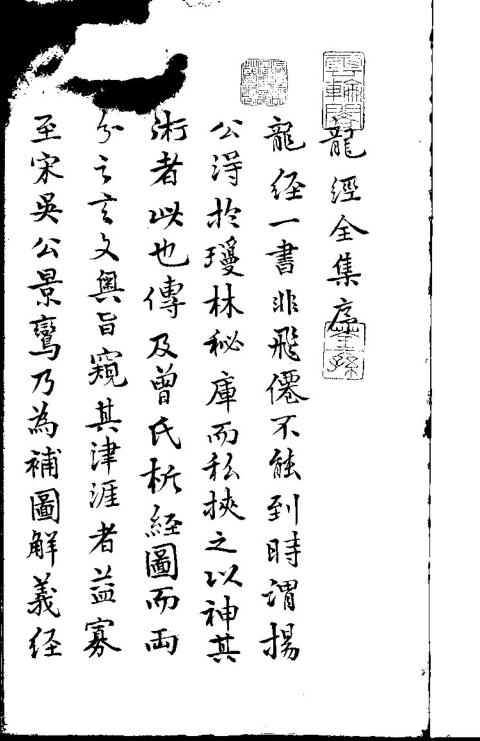 龍經全集序
龍經一書非飛僊不能到時謂揚
公得於瓊林秘庫而私挾之以神其
術者此也傳及曾氏析經圖而兩
分之言文奧旨窺其津涯者益寡
至宋吳公景鸞乃為補圖解義經